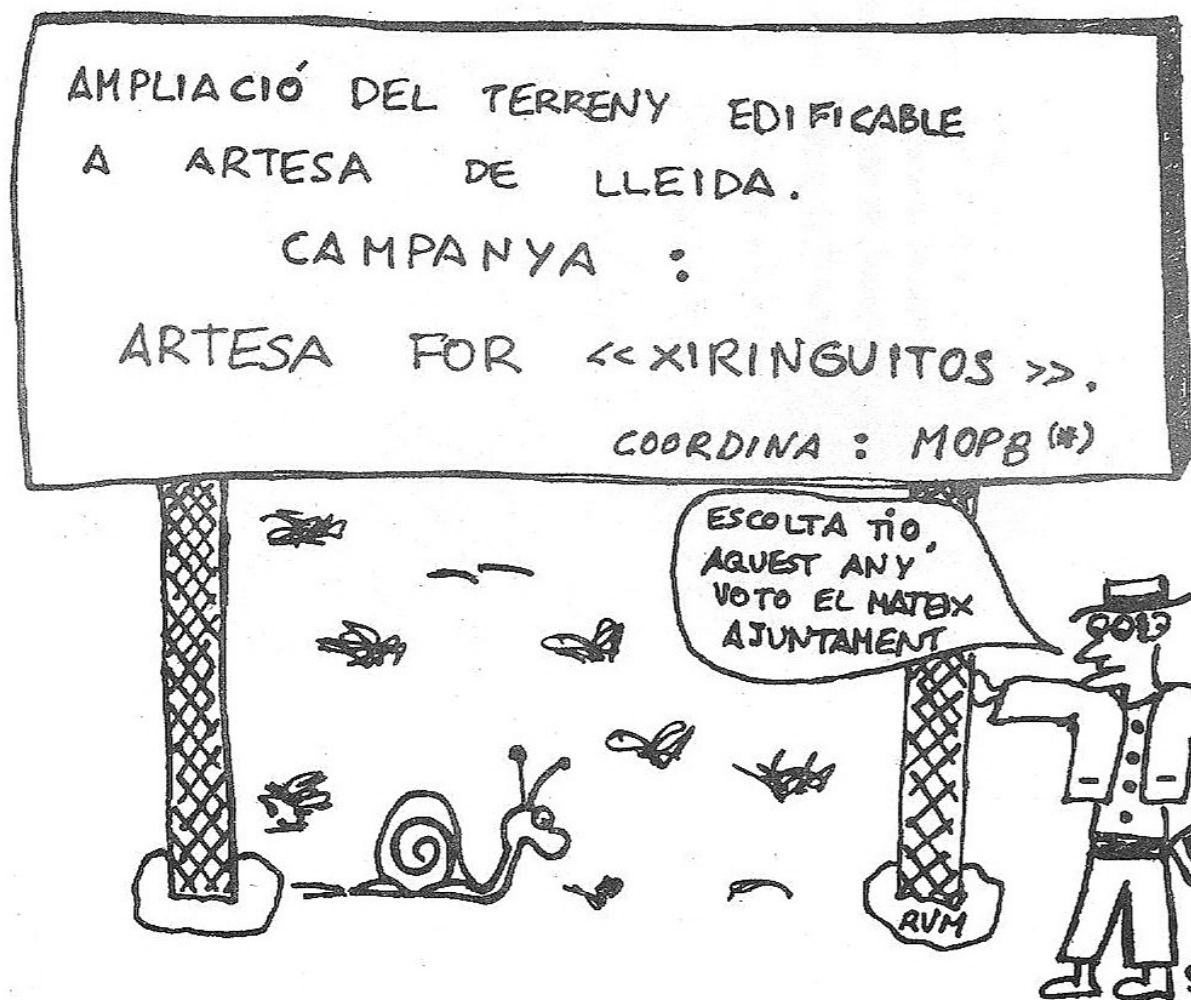 AMPLIACIÓ DEL TERRENY EDIFICABLE
A ARTESA DE LLEIDA.
CAMPANYA :
ARTESA FOR «XIRINGUITOS».
COORDINA : MOPB (*)
ESCOLTA TÍO,
AQUEST ANY
VOTO EL MATEIX
AJUNTAMENT
RVM